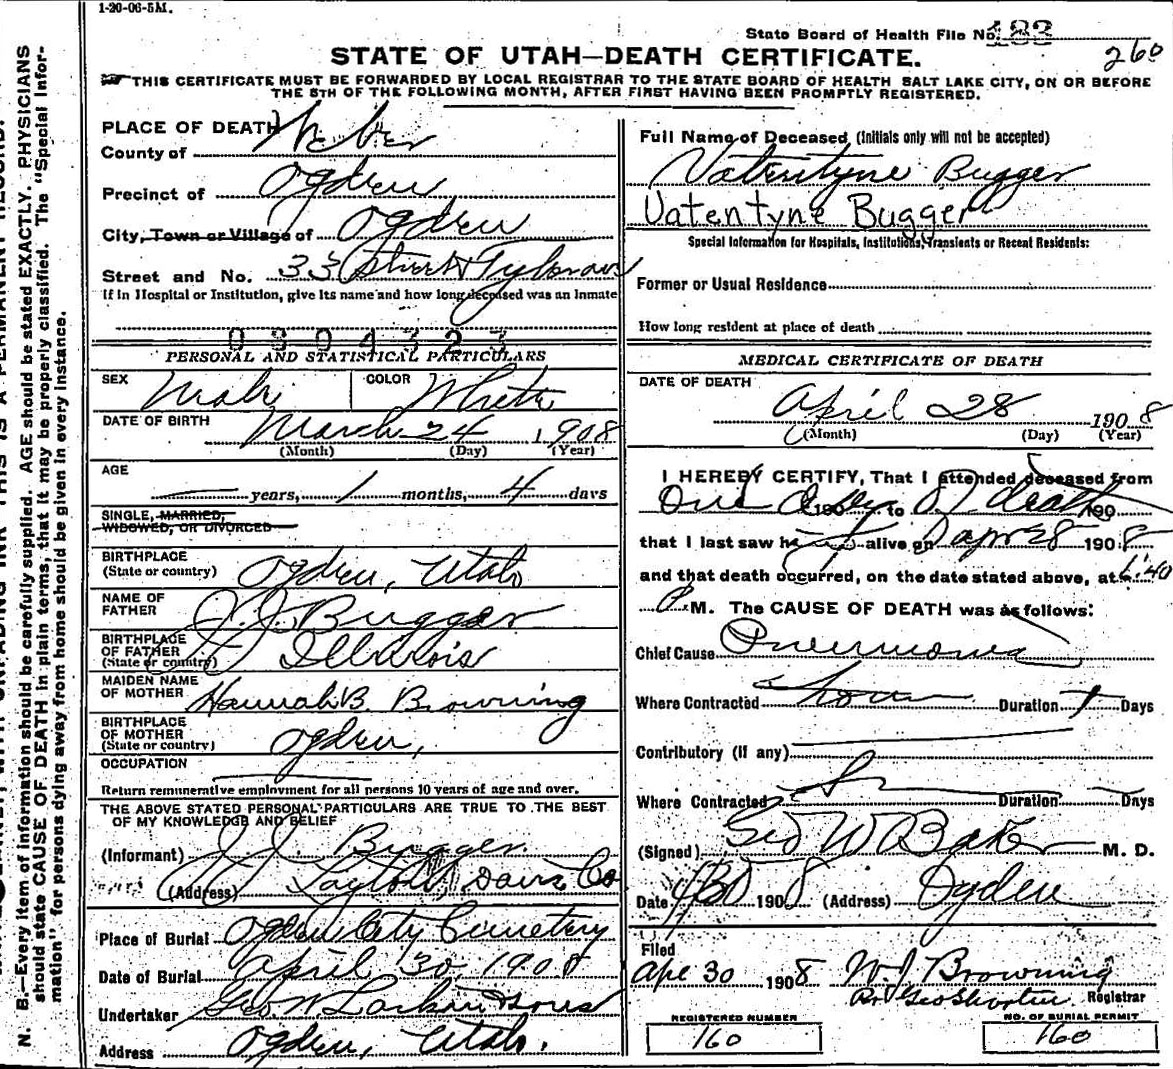 1-20-06-5M.
State Board of Health File No. 183
260
STATE OF UTAH—DEATH CERTIFICATE.
THIS CERTIFICATE MUST BE FORWARDED BY LOCAL REGISTRAR TO THE STATE BOARD OF HEALTH SALT LAKE CITY, ON OR BEFORE
THE 5TH OF THE FOLLOWING MONTH, AFTER FIRST HAVING BEEN PROMPTLY REGISTERED.
PLACE OF DEATH
County of Weber
Precinct of Ogden
City, Town or Village of Ogden
Street and No. 33 Street
If in Hospital or Institution, give its name and how long deceased was an Inmate
0804323
PERSONAL AND STATISTICAL PARTICULARS
SEX Male COLOR White
DATE OF BIRTH March 24 1908
(Month) (Day) (Year)
AGE
years, 1 months, 4 days
SINGLE, MARRIED,
WIDOWED, OR DIVORCED
BIRTHPLACE
(State or country) Ogden, Utah
NAME OF
FATHER J. J. Bugger
BIRTHPLACE
OF FATHER
(State or country) Illinois
MAIDEN NAME
OF MOTHER Hannah B. Browning
BIRTHPLACE
OF MOTHER
(State or country) Ogden,
OCCUPATION
Return remunerative employment for all persons 10 years of age and over.
THE ABOVE STATED PERSONAL PARTICULARS ARE TRUE TO THE BEST
OF MY KNOWLEDGE AND BELIEF
(Informant) J. J. Bugger.
(Address) Layton, Davis Co
Place of Burial Ogden City Cemetery
Date of Burial April 30, 1908
Undertaker Geo. W. Larkin & Sons
Address Ogden, Utah.
Full Name of Deceased (Initials only will not be accepted)
Valentyne Bugger
Vatentyne Bugger
Special Information for Hospitals, Institutions, Transients or Recent Residents:
Former or Usual Residence
How long resident at place of death
MEDICAL CERTIFICATE OF DEATH
DATE OF DEATH
April 28 1908
(Month) (Day) (Year)
I HEREBY CERTIFY, That I attended deceased from
One day 190 to of death 190
that I last saw h alive on Apr 28 1908
and that death occurred, on the date stated above, at 1:40
P M. The CAUSE OF DEATH was as follows:
Chief Cause Pneumonia
Where Contracted Home Duration Days
Contributory (if any)
Where Contracted Duration Days
(Signed) Geo W Baker M. D.
Date 4/30 1908 (Address) Ogden
Filed
Apr 30 1908 W J Browning
Registrar
REGISTERED NUMBER
160
NO. OF BURIAL PERMIT
160
N. B.—Every item of information should be carefully supplied. AGE should be stated EXACTLY. PHYSICIANS
should state CAUSE OF DEATH in plain terms, that it may be properly classified. The "Special Infor-
mation" for persons dying away from home should be given in every instance.